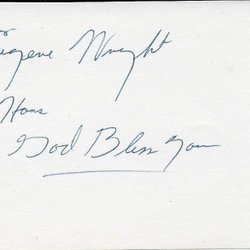 Eugene Wright
God Bless you